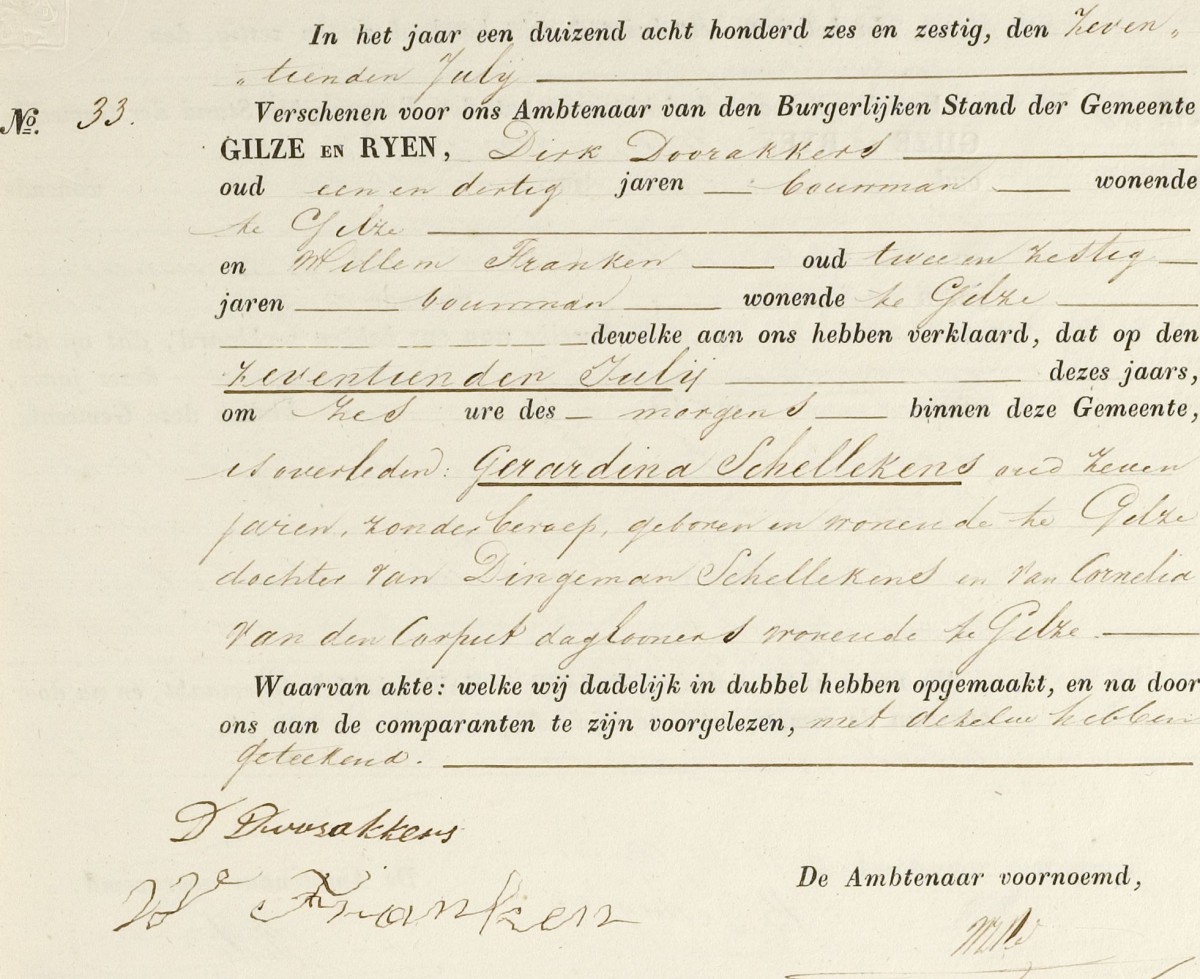 In het jaar een duizend acht honderd zes en zestig, den zeven„
„tienden Julij
No. 33. Verschenen voor ons Ambtenaar van den Burgerlijken Stand der Gemeente
GILZE EN RYEN, Dirk Doorakkers
oud een en dertig jaren bouwman wonende
te Gilze
en Willem Franken oud twee en zestig
jaren bouwman wonende te Gilze
dewelke aan ons hebben verklaard, dat op den
zeventienden Julij dezes jaars,
om zes ure des morgens binnen deze Gemeente,
is overleden: Gerardina Schellekens oud zeven
jaren, zonder beroep, geboren en wonende te Gilze
dochter van Dingeman Schellekens en van Cornelia
van den Corput daglooners wonende te Gilze.
Waarvan akte: welke wij dadelijk in dubbel hebben opgemaakt, en na door
ons aan de comparanten te zijn voorgelezen, met dezelve hebben
geteekend.
D Doorakkers
We Franken
De Ambtenaar voornoemd,